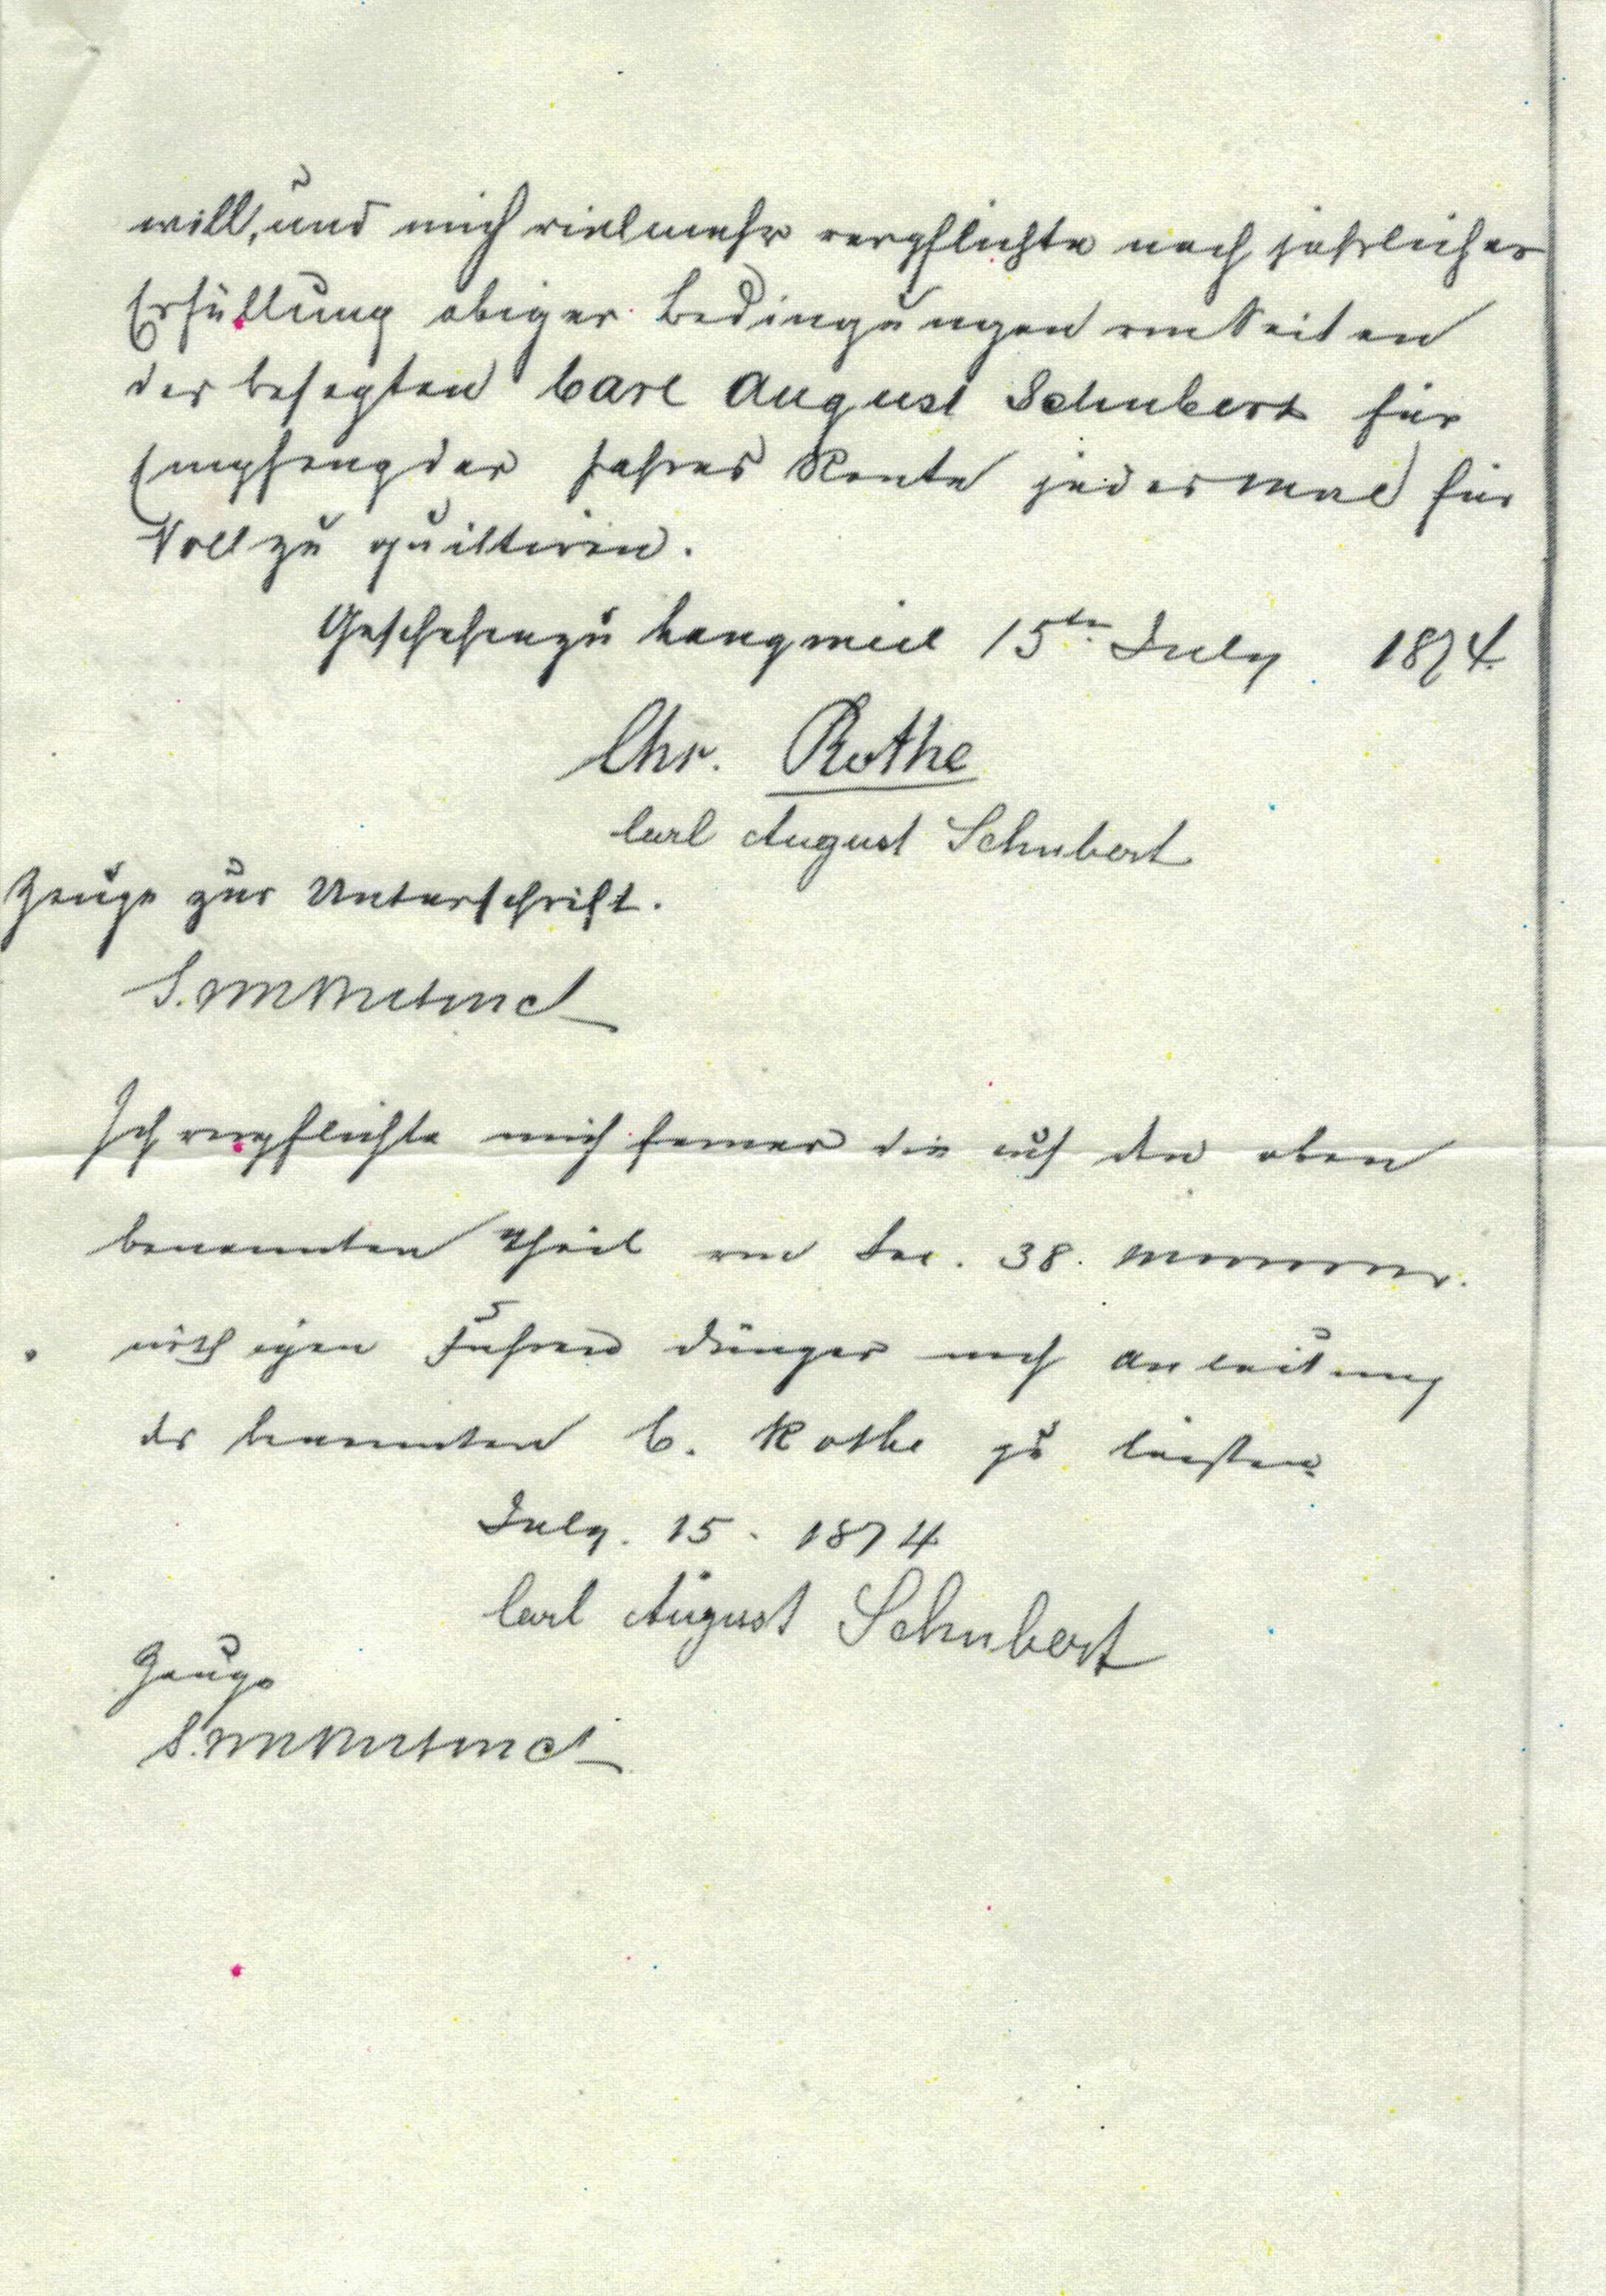 will, und mich vielmehr verpflichte nach jährlicher
Erfüllung obiger Bedingungen von Seiten
des besagten Carl August Schubert für
Empfang der Jahres Rente jedesmal für
Voll zu quittiren.
Geschehen zu Langmeil 15ten July 1874.
Chr. Rothe
Carl August Schubert
Zeuge zur Unterschrift.
Ich verpflichte mich ferner die auf den oben
benannten Theil von Sec. 38.
nöthigen Fuhren Dünger nach Anleitung
des benannten C. Rothe zu leisten
July. 15. 1874
Carl August Schubert
Zeuge